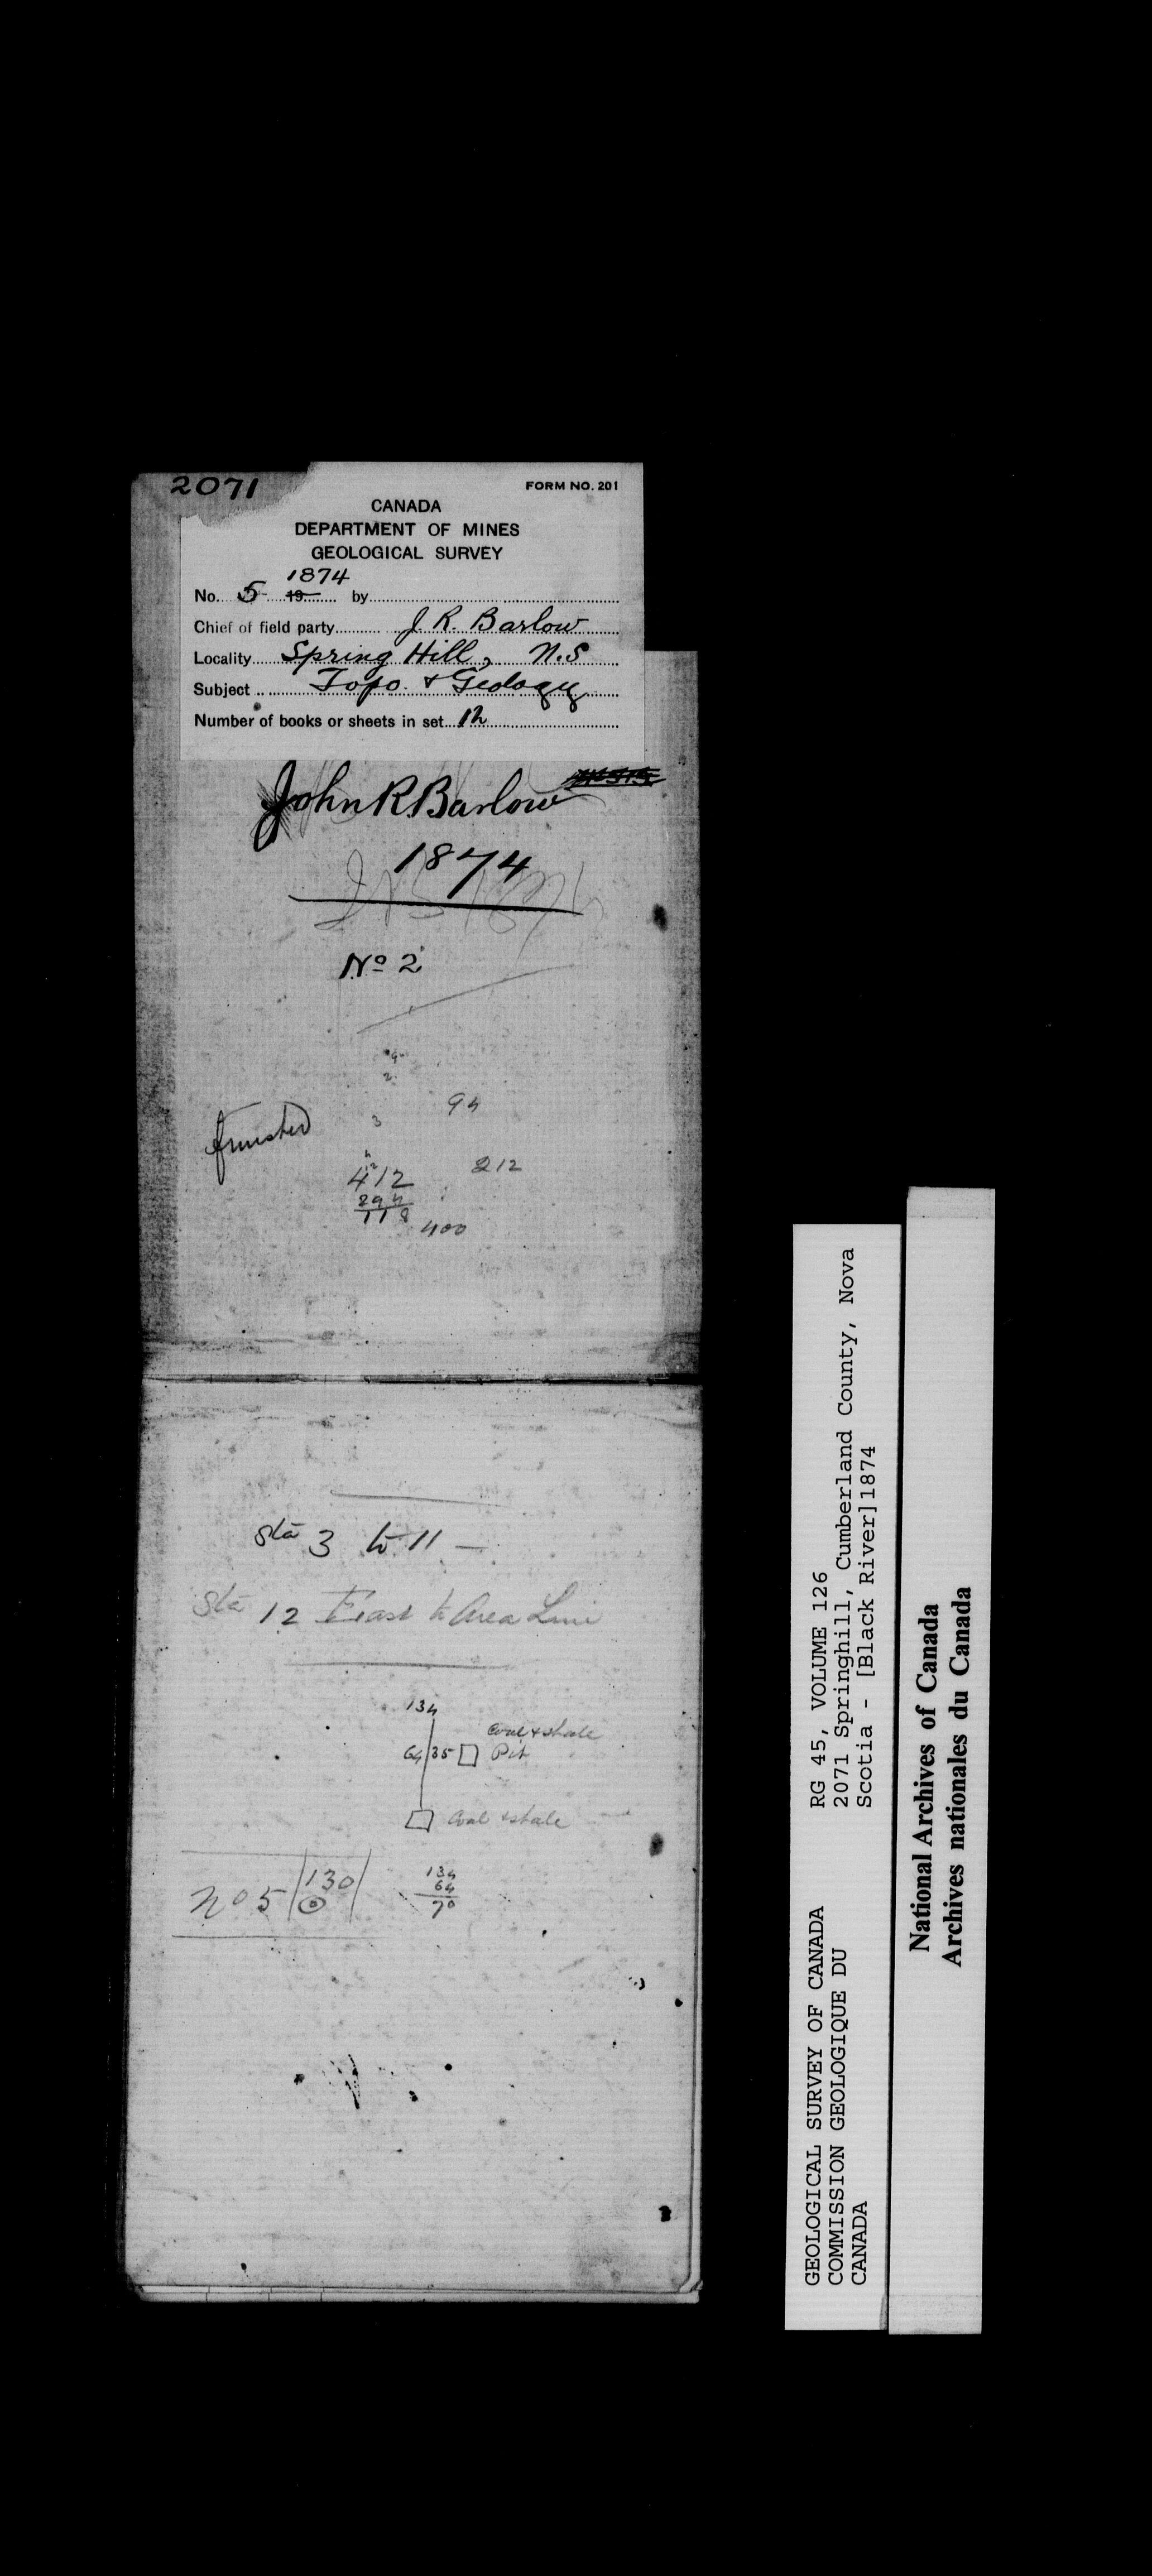 2071
FORM NO. 201
CANADA
DEPARTMENT OF MINES
GEOLOGICAL SURVEY
1874
No. 5 19 by
Chief of field party J. R. Barlow
Locality Spring Hill, N.S
Subject Topo. & Geology
Number of books or sheets in set 12
John R. Barlow
1874
No 2
94
3
212
412
294
118
400
Sta 3 to 11 —
Sta 12 East to Area Line
134
Coal & shale
64 35 Pit
Coal & shale
No 5 130
134
64
70
RG 45, VOLUME 126
2071 Springhill, Cumberland County, Nova
Scotia - [Black River]1874
GEOLOGICAL SURVEY OF CANADA
COMMISSION GEOLOGIQUE DU
CANADA
National Archives of Canada
Archives nationales du Canada